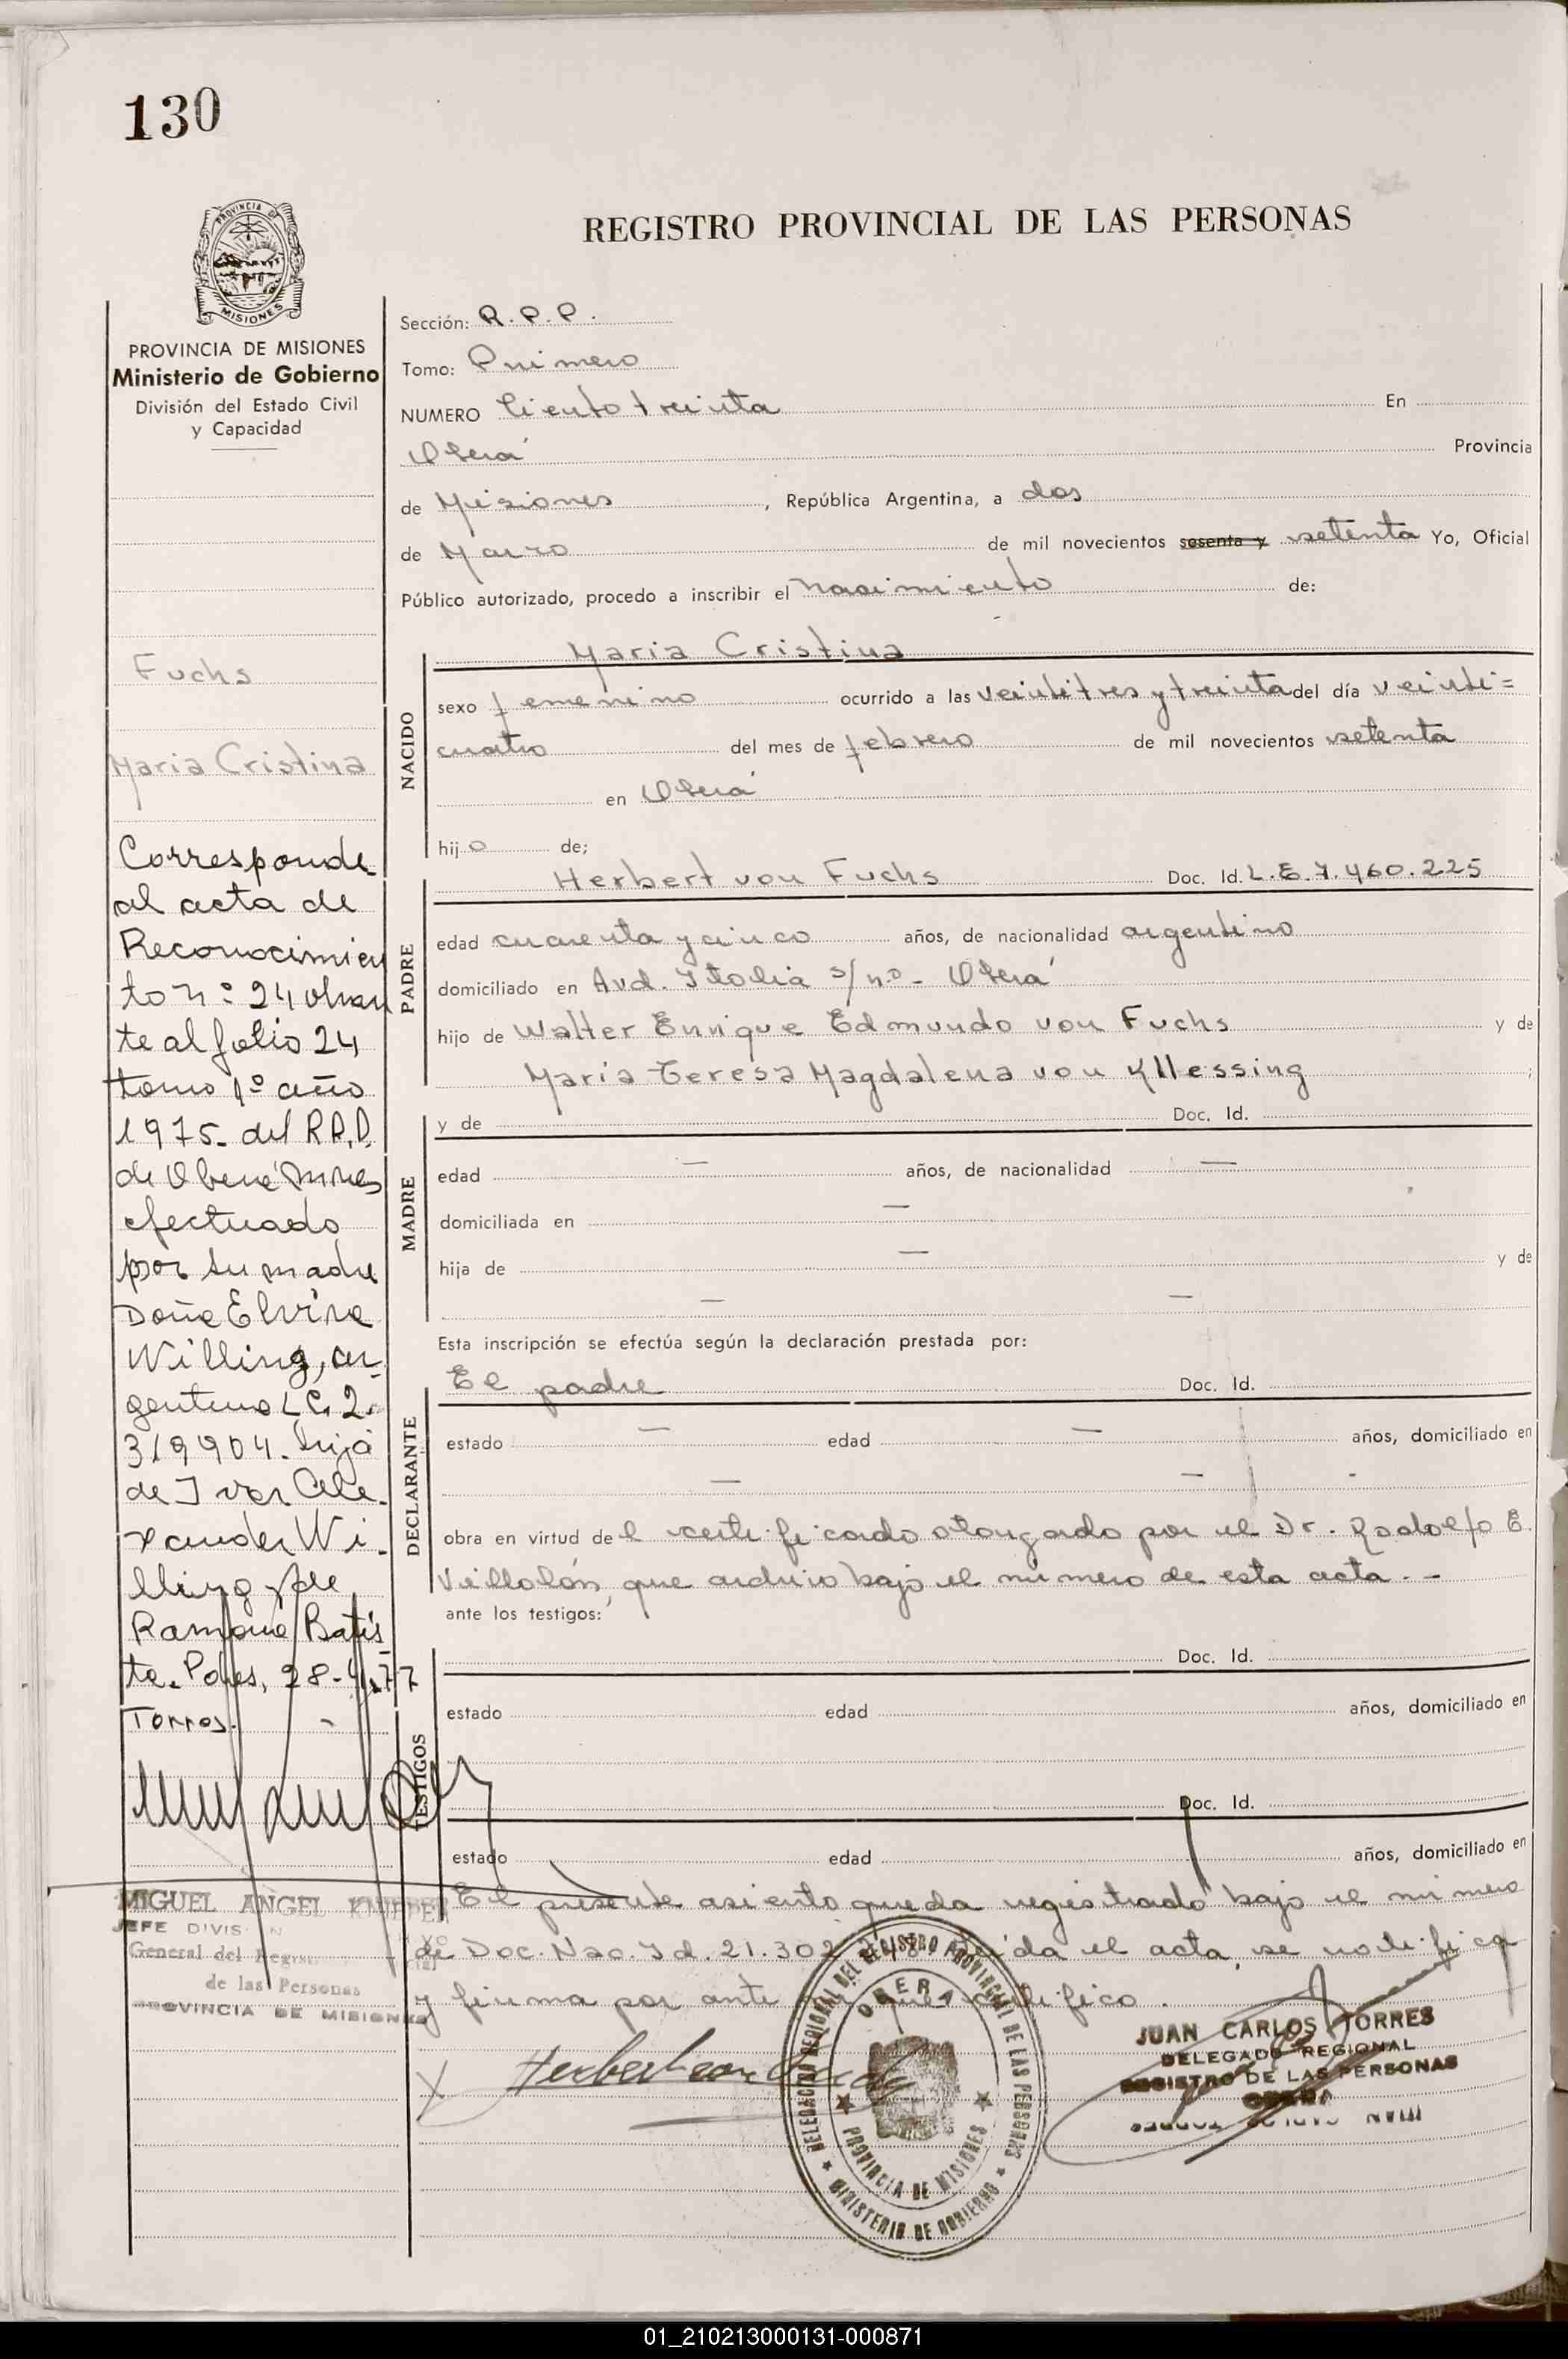 130
PROVINCIA DE
MISIONES
PROVINCIA DE MISIONES
Ministerio de Gobierno
División del Estado Civil
y Capacidad
Fuchs
Maria Cristina
Corresponde
al acta de
Reconocimien
to nº 24 obran
te al folio 24
tomo 1º año
1975. del R.P.P.
de Oberá Mnes
efectuado
por su madre
Doña Elvira
Willing, ar-
gentina L.C. 2.
319904. hija
de Ivar Ale-
xander Wi-
lling y de
Ramona Batis
ta. Pdas, 28-4-77
Torres.
MIGUEL ANGEL
JEFE DIVIS
General del Regis
de las Personas
PROVINCIA DE MISIONES
REGISTRO PROVINCIAL DE LAS PERSONAS
Sección: R.P.P.
Tomo: Primero
NUMERO Ciento treinta En
Oberá Provincia
de Misiones, República Argentina, a dos
de Marzo de mil novecientos sesenta y setenta Yo, Oficial
Público autorizado, procedo a inscribir el nacimiento de:
NACIDO
Maria Cristina
sexo femenino ocurrido a las veintitres y treinta del día veinti=
cuatro del mes de febrero de mil novecientos setenta
en Oberá
hija de;
PADRE
Herbert von Fuchs Doc. Id. L.E. 7.460.225
edad cuarenta y cinco años, de nacionalidad argentino
domiciliado en Avd. Italia s/nº - Oberá
hijo de Walter Enrique Edmundo von Fuchs y de
Maria Teresa Magdalena von Kllessing ;
MADRE
y de Doc. Id.
edad — años, de nacionalidad —
domiciliada en —
hija de — y de
— —
Esta inscripción se efectúa según la declaración prestada por:
DECLARANTE
El padre Doc. Id.
estado — edad — años, domiciliado en
— —
obra en virtud del certificado otorgado por el Dr. Rodolfo E.
Villalón, que archivo bajo el número de esta acta. -
ante los testigos:
TESTIGOS
Doc. Id.
estado edad años, domiciliado en
Doc. Id.
estado edad años, domiciliado en
El presente asiento queda registrado bajo el número
de Doc. Nac. Id. 21.302 el acta, se notifica
y firma por ante que certifico.
Herbert von Fuchs
DELEGACION REGIONAL DEL REGISTRO PROVINCIAL DE LAS PERSONAS
OBERA
PROVINCIA DE MISIONES
MINISTERIO DE GOBIERNO
JUAN CARLOS TORRES
DELEGADO REGIONAL
REGISTRO DE LAS PERSONAS
OBERA
01_210213000131-000871